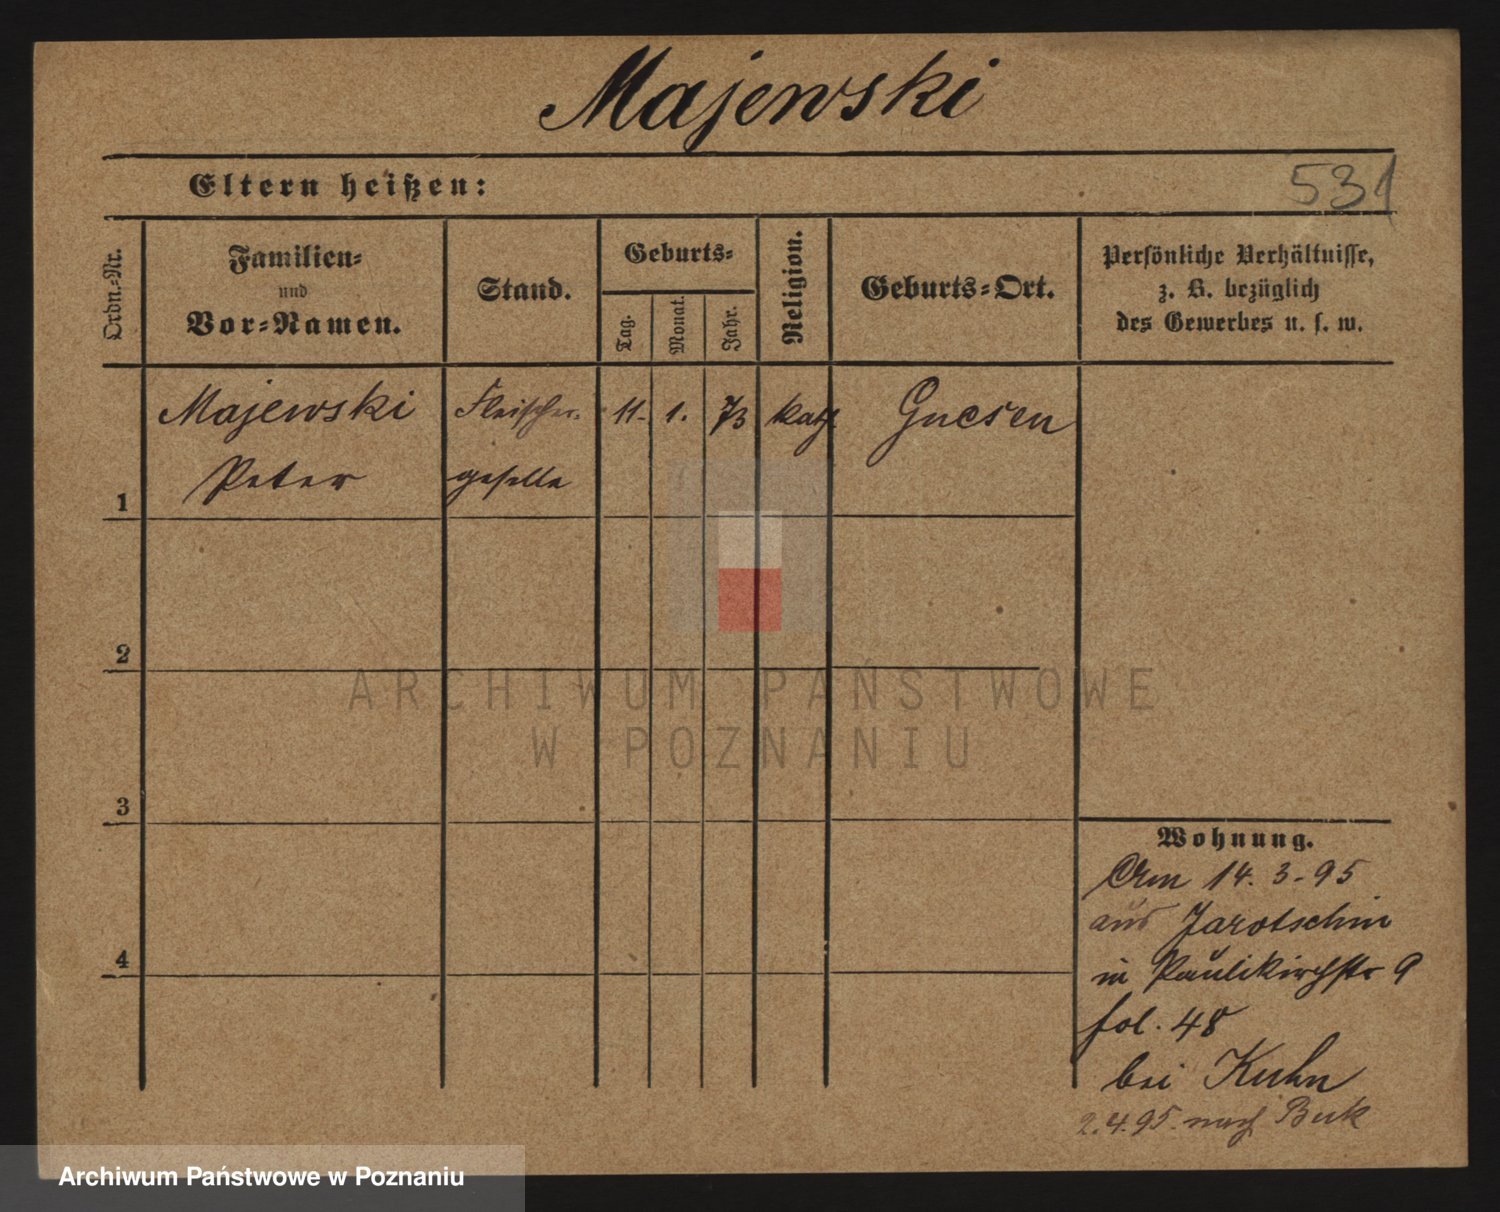 Majewski
Eltern heißen:
531
Ordn.-Nr.
Familien-
und
Vor-Namen.
Stand.
Geburts-
Tag.
Monat.
Jahr.
Religion.
Geburts-Ort.
Persönliche Verhältnisse,
z. B. bezüglich
des Gewerbes u. s. w.
Majewski Fleischer- 11. 1. 73 kath. Gnesen
1 Peter geselle
2
ARCHIWUM PAŃSTWOWE
W POZNANIU
3
Wohnung.
Am 14. 3. 95
aus Jarotschin
in Paulikirchstr 9
4
fol. 48
bei Kuhn
2.4.95. nach Buk
Archiwum Państwowe w Poznaniu